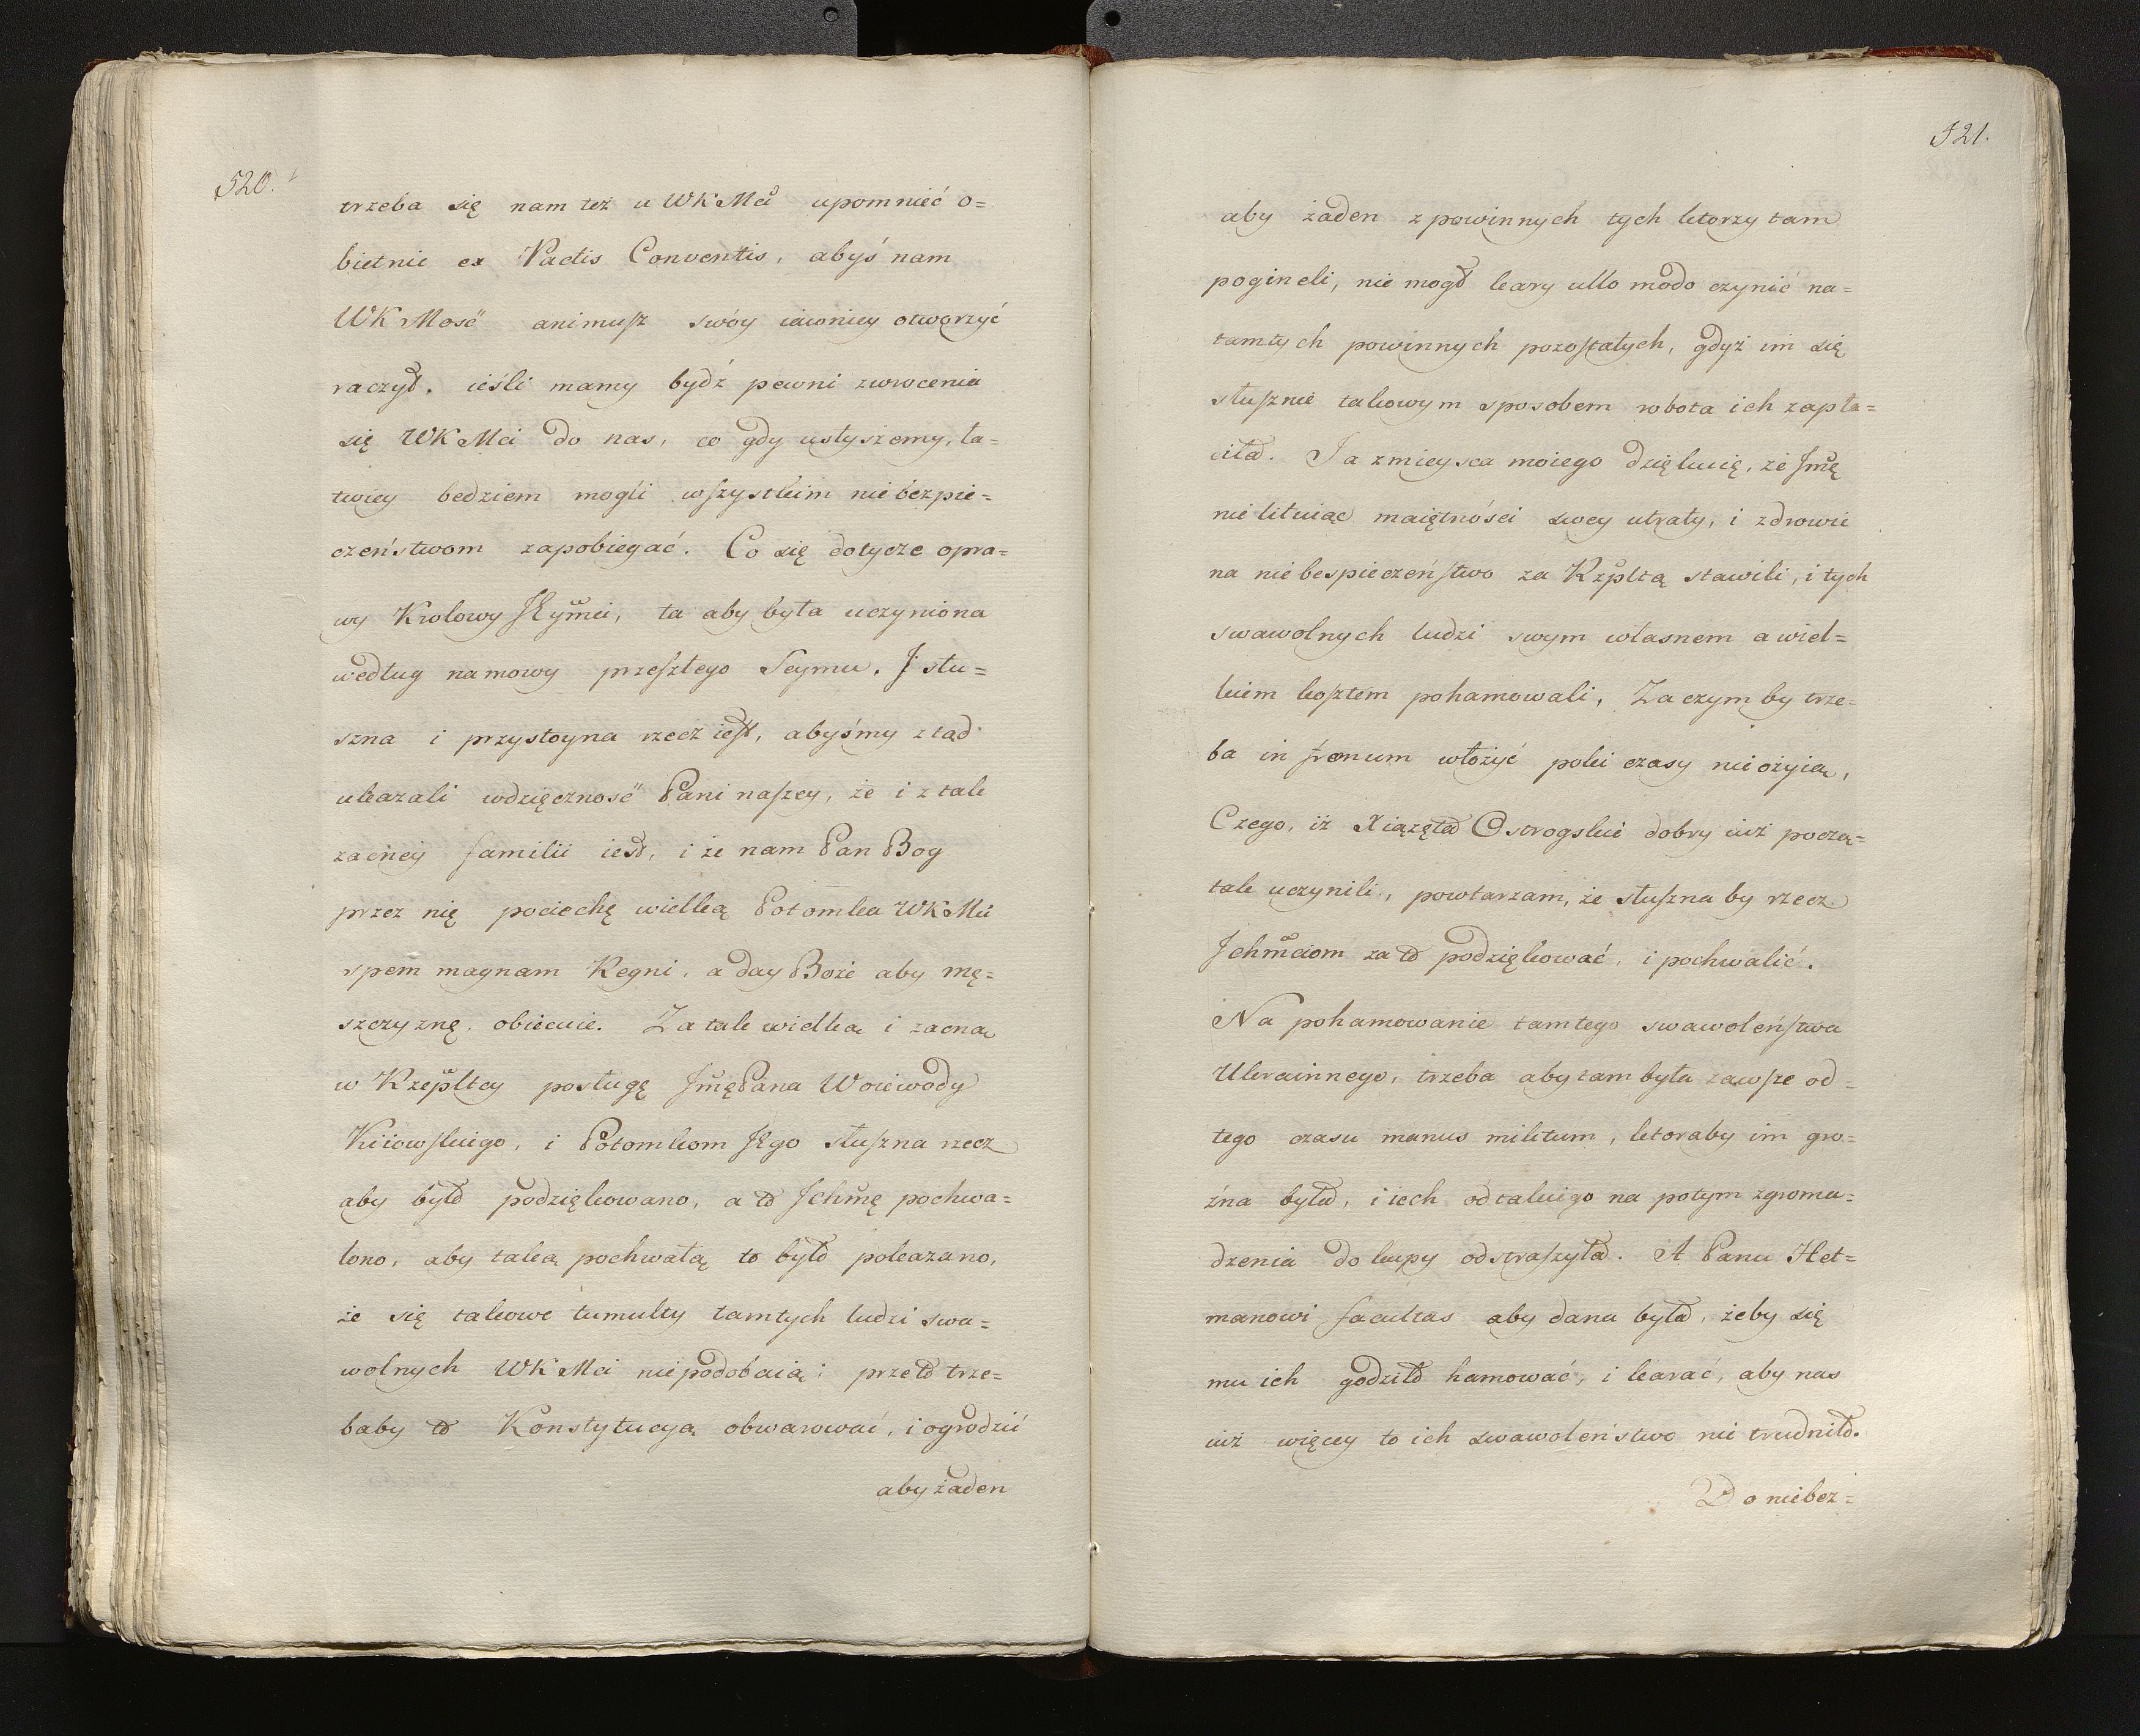 520.
trzeba się nam też u WKMci upomnieć o=
bietnic ex Pactis Conventis, abyś nam
WKMość animusz swóy iawniey otworzyć
raczył. ieśli mamy bydź pewni zwrocenia
się WKMci do nas, co gdy usłyszemy, ła=
twiey bedziem mogli wszystkim niebezpie=
czeństwom zapobiegać. Co się dotycze opra=
wy Krolowy JEymci, ta aby była uczyniona
według namowy przeszłego Seymu. J słu=
szna i przystoyna rzecz iest, abyśmy ztąd
ukazali wdzięczność Pani naszey, że i z tak
zacney familii iest, i że nam Pan Bog
przez nię pociechę wielką Potomka WKMci
spem magnam Regni, a day Boże aby mę=
szczyznę, obiecuie. Za tak wielką i zacną
w Rzepltey posługę JmęPana Woiewody
Kiiowskiego, i Potomkom JEgo słuszna rzecz
aby było podziękowano, a to Jchmę pochwa=
lono, aby taką pochwałą to było pokazano,
że się takowe tumulty tamtych ludzi swa=
wolnych WKMci niepodobaią; przeto trze=
baby to Konstytucyą obwarować, i ogrodzić
aby żaden
521.
aby żaden z powinnych tych ktorzy tam
pogineli, nie mogł kary ullo modo czynić na=
tamtych powinnych pozostałych, gdyż im się
słusznie takowym sposobem robota ich zapła=
ciła. Ja z mieysca moiego dziękuię, że Jmę
nie lituiąc maiętności swey utraty, i zdrowie
na niebespieczeństwo za Rzpltą stawili, i tych
swawolnych ludzi swym własnem a wiel=
kiem kosztem pohamowali, Za czym by trze=
ba in frenum włożyć poki czasy nieożyią,
Czego, iż Xiążęta Ostrogskie dobry iuż począ=
tek uczynili, powtarzam, że słuszna by rzecz
Jchmciom za to podziękować, i pochwalić.
Na pohamowanie tamtego swawoleństwa
Ukrainnego, trzeba aby tam była zawsze od=
tego czasu manus militum, ktoraby im gro=
źna była, i iech od takiego na potym zgroma=
dzenia do kupy odstraszyła. A Panu Het=
manowi facultas aby dana była, żeby się
mu ich godziło hamować, i karać, aby nas
iuż więcey to ich swawoleństwo nie trudniło.
Do niebez=